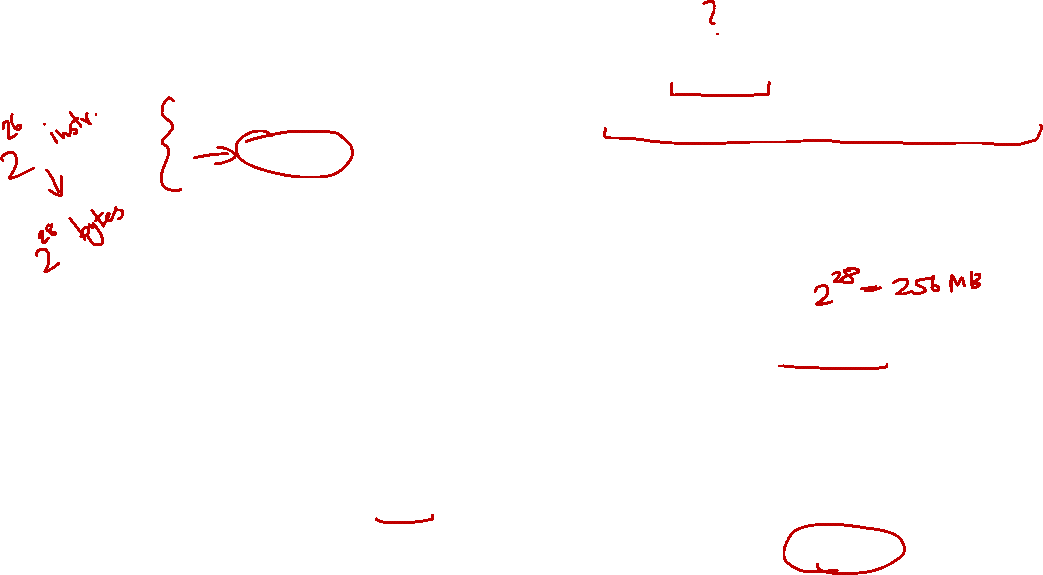 ?
2^26 instr.
2^28 bytes
2^28 = 256 MB